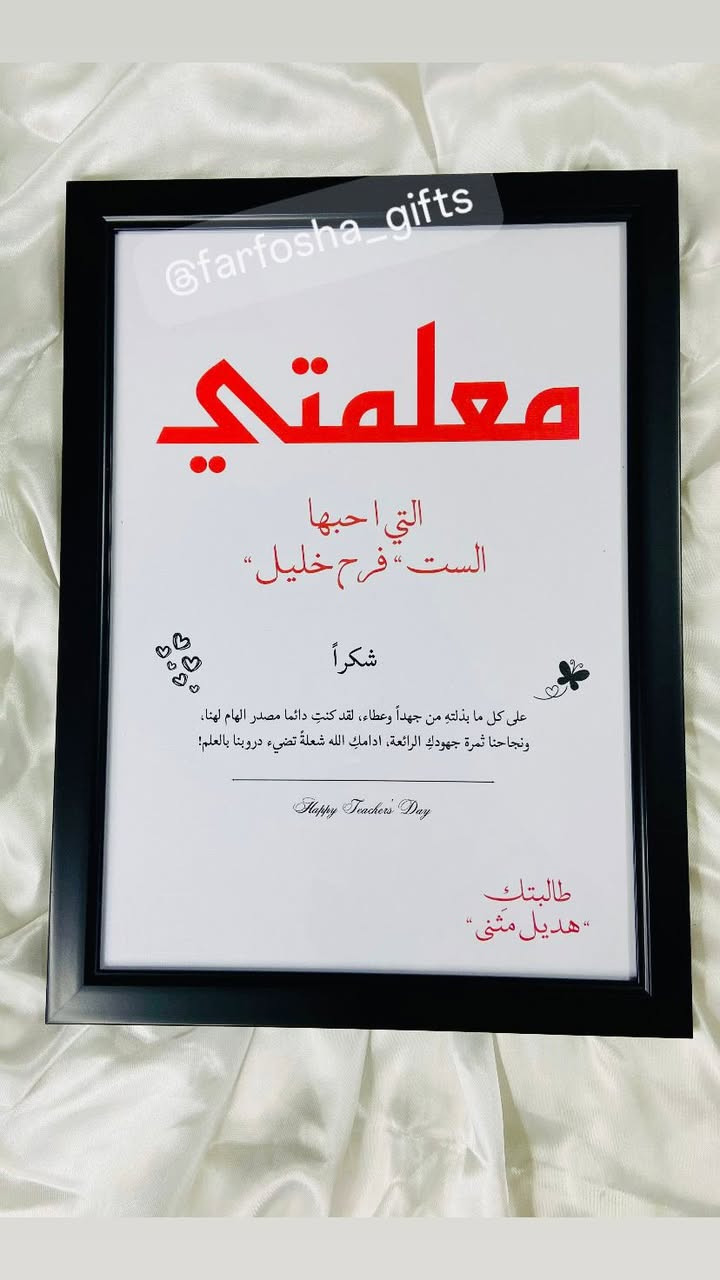 @farfosha_gifts
معلمتي
التي احبها
الست “فرح خليل“
شكراً
على كل ما بذلتهِ من جهداً وعطاء، لقد كنتِ دائما مصدر الهام لهنا،
ونجاحنا ثمرة جهودكِ الرائعة، ادامكِ الله شعلةً تضيء دروبنا بالعلم!
Happy Teacher's Day
طالبتكِ
“هديل مَثنى“